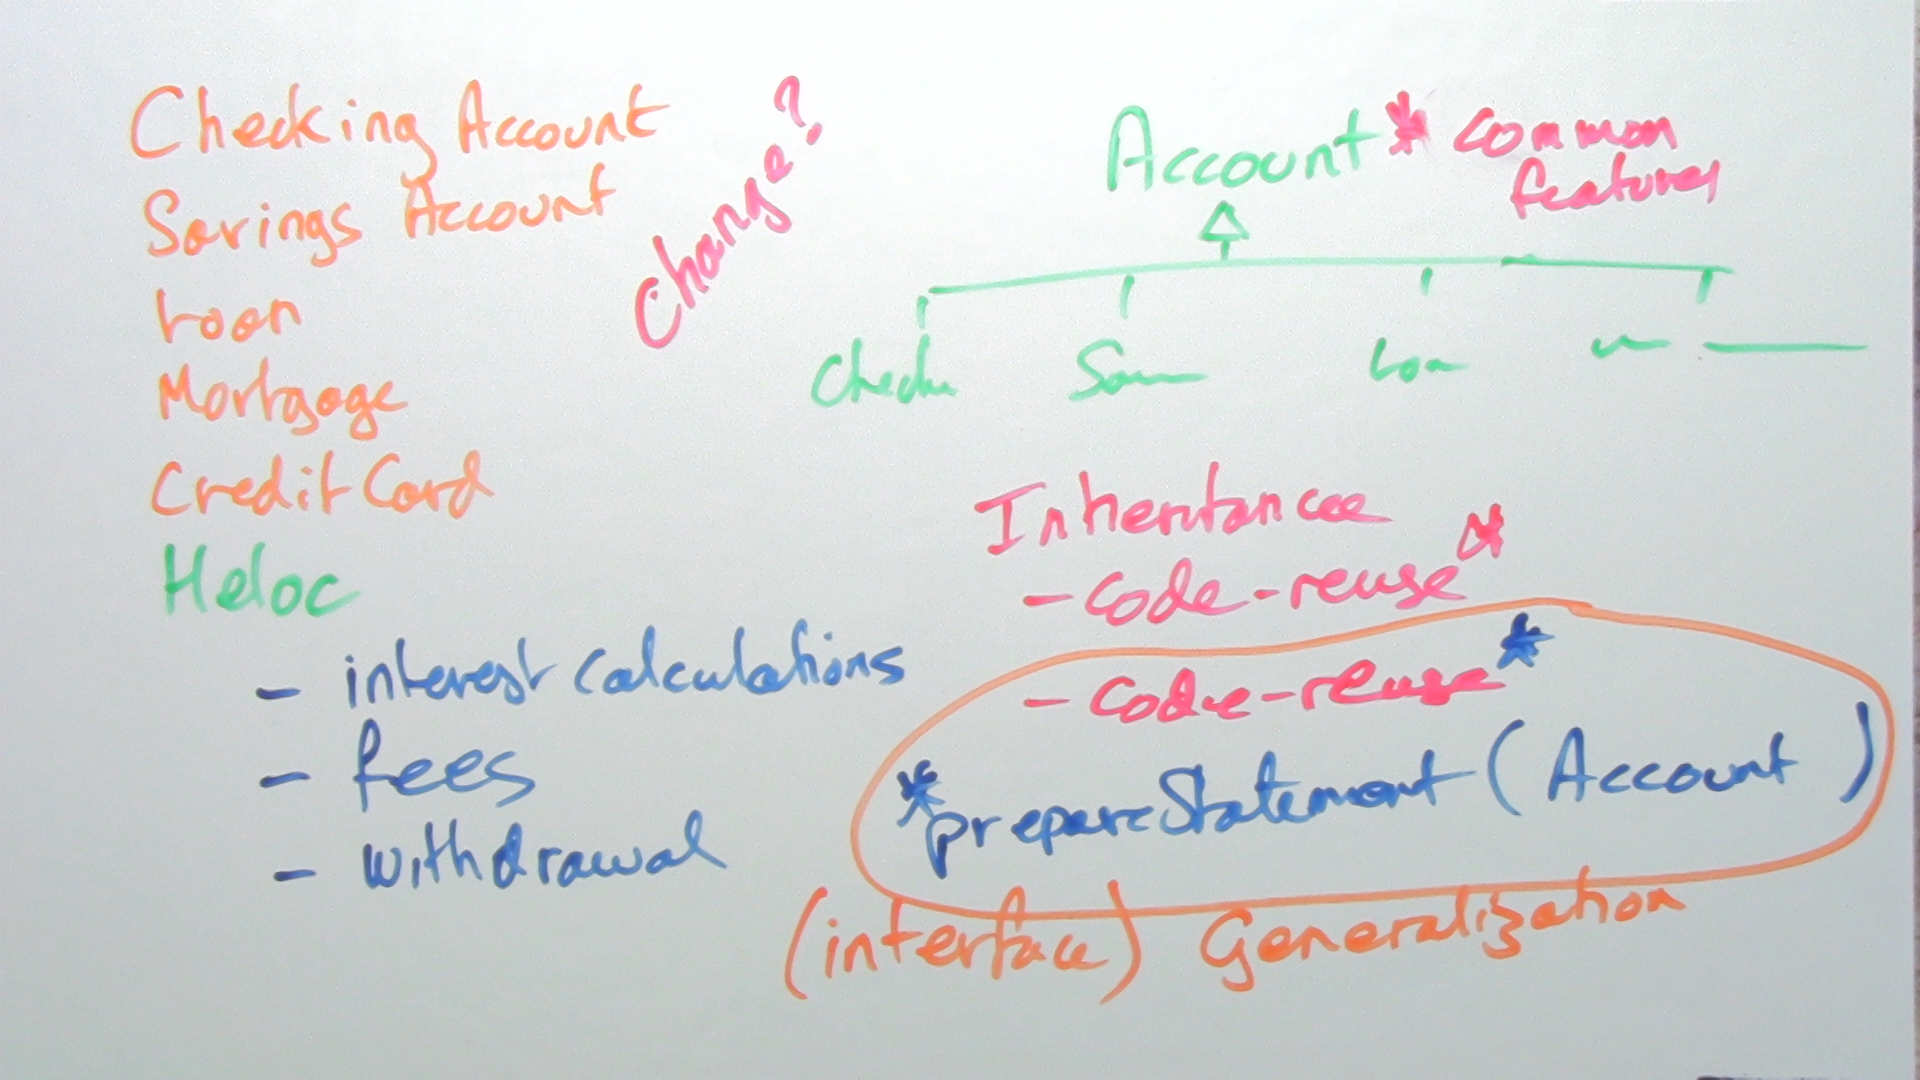 Checking Account
Savings Account
Loan
Mortgage
Credit Card
Heloc
- interest calculations
- fees
- withdrawal
Change?
Account * common
features
Inheritance
- code-reuse *
- code-reuse *
* prepareStatement (Account )
(interface) Generalization